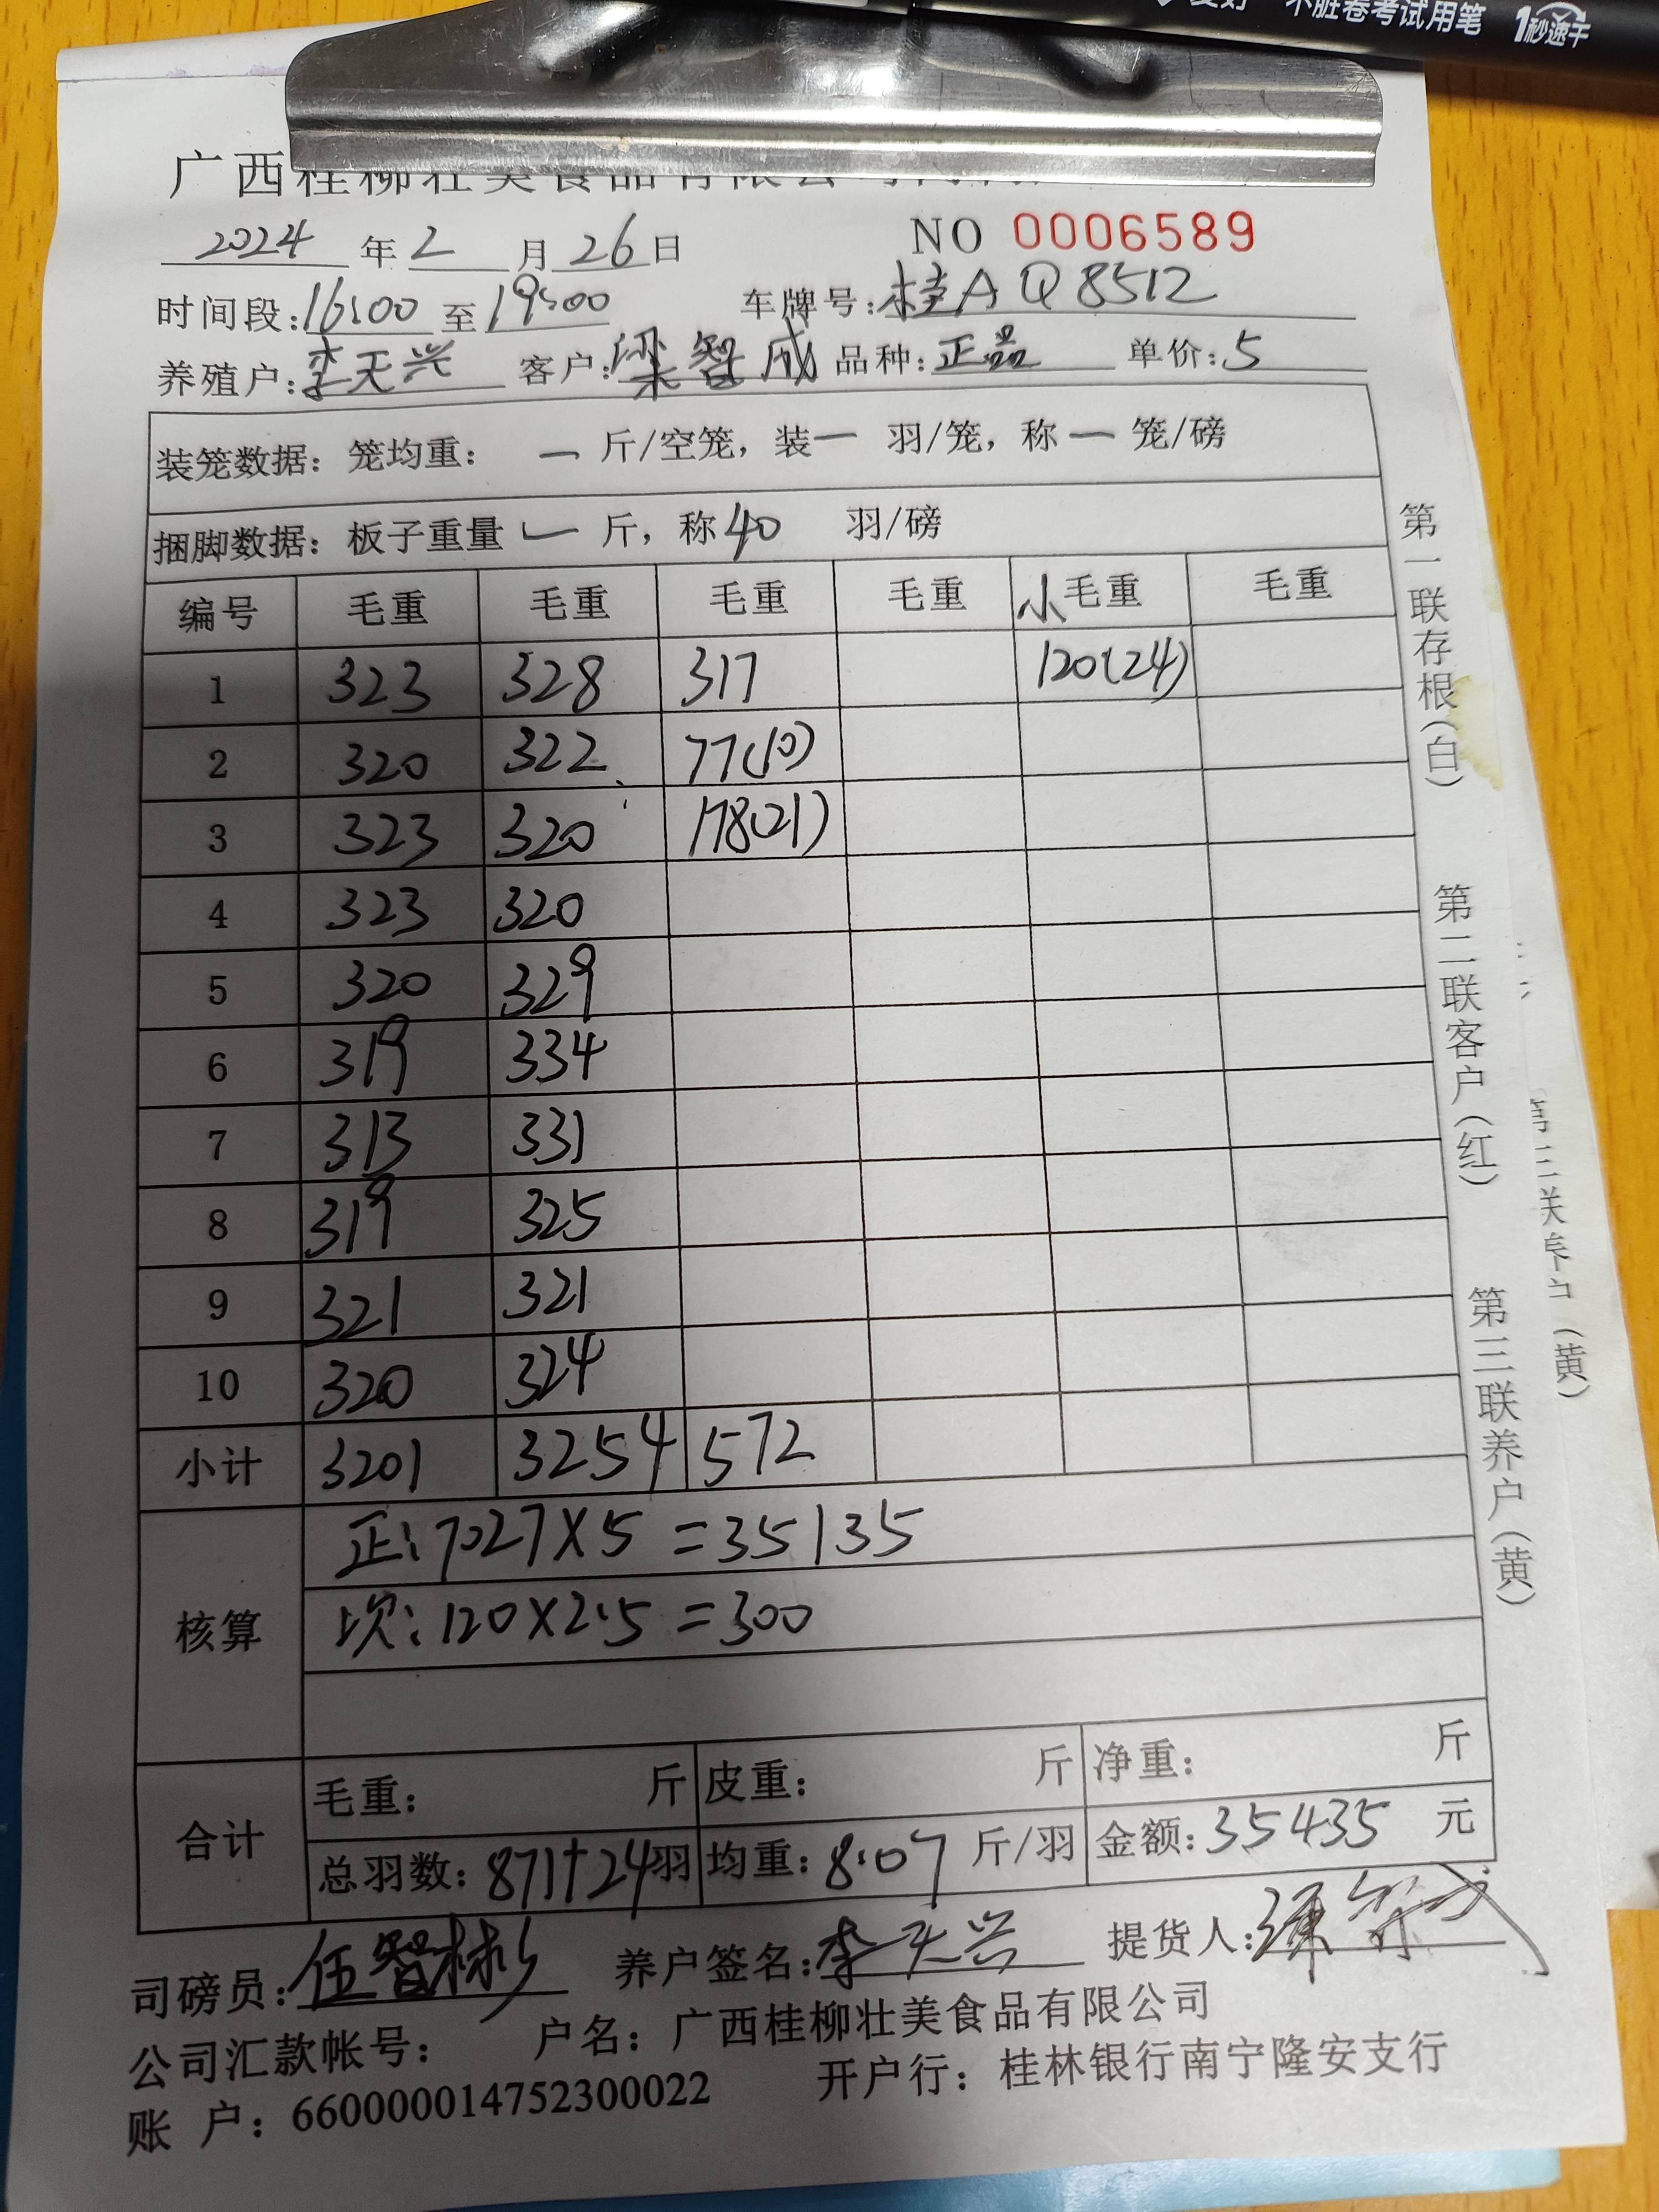 不脏卷考试用笔 1秒速干
广西桂柳壮美食品有限公司
2024 年 2 月 26 日 NO 0006589
时间段:16:00 至 19:00 车牌号:桂A Q8512
养殖户:李天兴 客户:梁智成 品种:正品 单价:5
装笼数据:笼均重: 一 斤/空笼,装一 羽/笼,称一 笼/磅
捆脚数据:板子重量 一 斤,称40 羽/磅
编号 毛重 毛重 毛重 毛重 小毛重 毛重
1 323 328 317 120(24)
2 320 322 77(10)
3 323 320 178(21)
4 323 320
5 320 329
6 319 334
7 313 331
8 319 325
9 321 321
10 320 324
小计 3201 3254 572
核算
正:7027×5=35135
次:120×2.5=300
合计
毛重: 斤 皮重: 斤 净重: 斤
总羽数:871+24羽 均重:8.07 斤/羽 金额:35435 元
司磅员:伍智彬 养户签名:李天兴 提货人:
公司汇款帐号: 户名:广西桂柳壮美食品有限公司
账 户:660000014752300022 开户行:桂林银行南宁隆安支行
第一联存根(白)
第二联客户(红)
第三联养户(黄)
(黄)